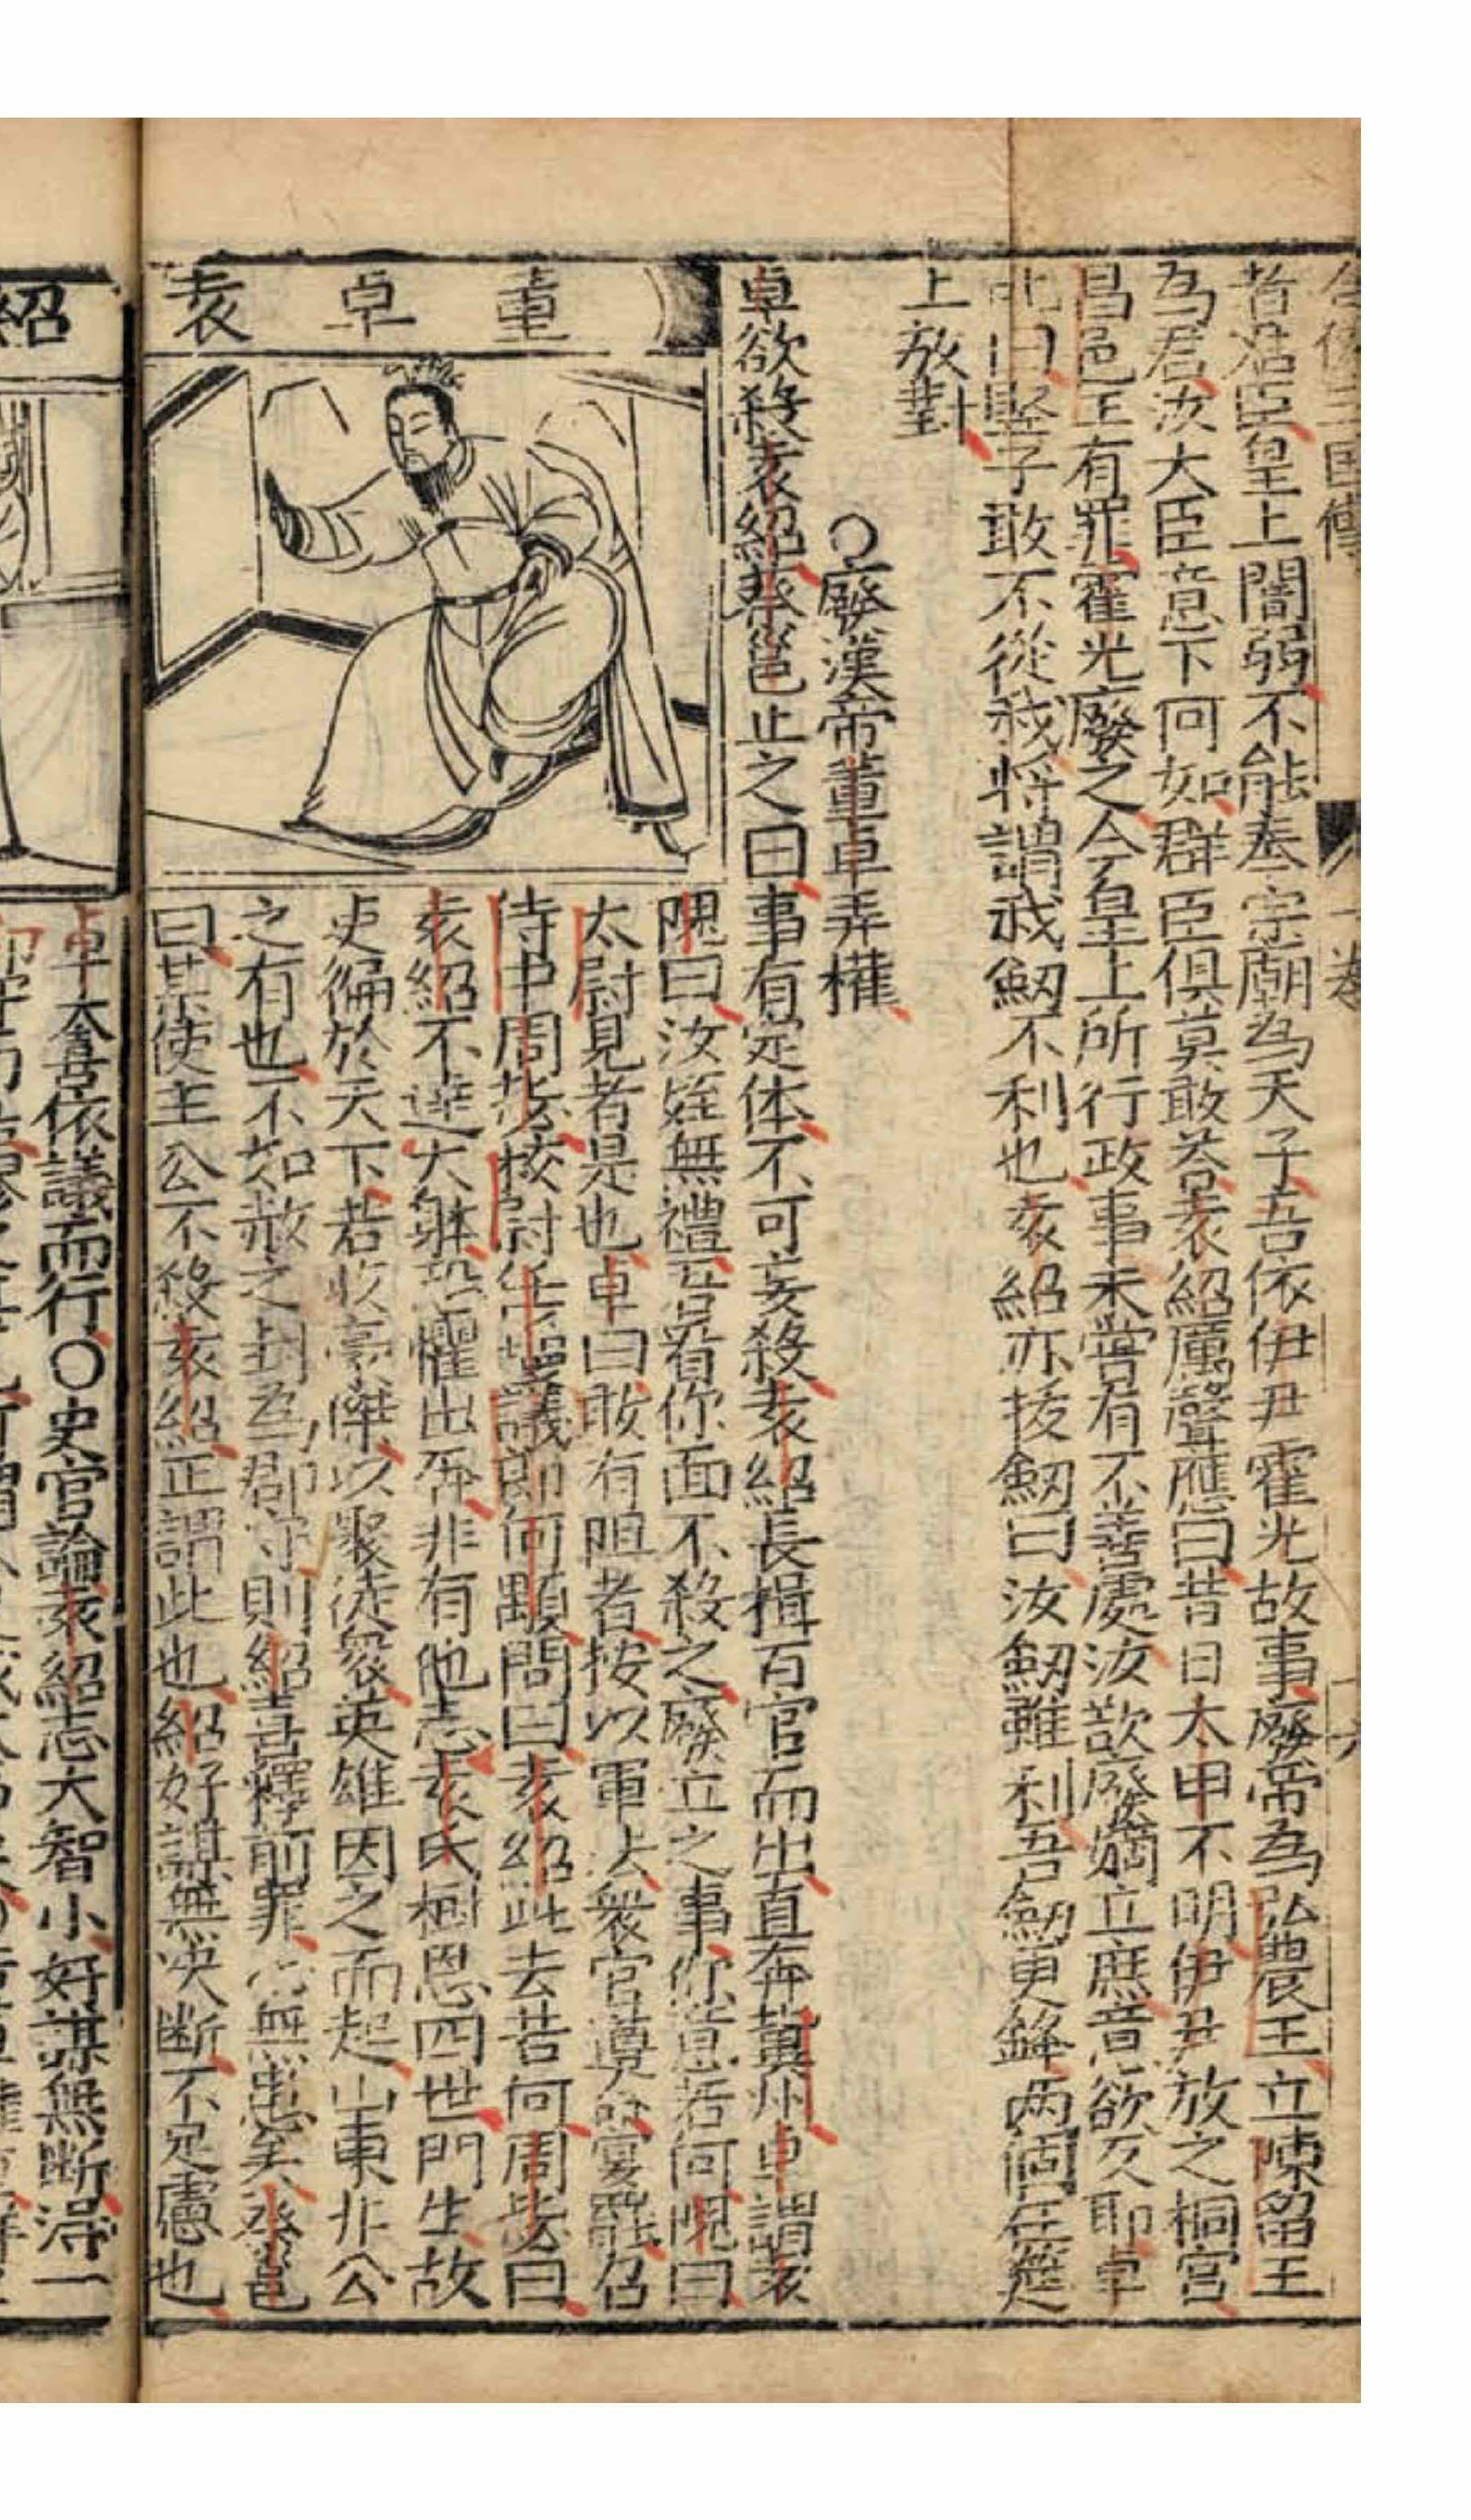 全像三国傳 一卷 十六
者君臣皇上闇弱不能奉宗廟為天子吾依伊尹霍光故事廢帝為弘農王立陳留王
為君汝大臣意下何如群臣俱莫敢荅袁紹厲聲應曰昔日太甲不明伊尹放之桐宮
昌邑王有罪霍光廢之今皇上所行政事未甞有不善處汝欲廢嫡立庶意欲反耶卓
叱曰竪子敢不從我將謂我劒不利也袁紹亦拔劒曰汝劒雖利吾劒更鋒两個在筵
上放對
○廢漢帝董卓弄權
卓欲殺袁紹蔡邕止之曰事有定体不可妄殺袁紹長揖百官而出直奔冀州卓謂袁
隗曰汝姪無禮吾看你面不殺之廢立之事你意若何隗曰
太尉見者是也卓曰敢有阻者按以軍法衆官遵命宴罷召
侍中周毖校尉伍瓊議郎何顒問曰袁紹此去若何周毖曰
袁紹不達大體恐懼出奔非有他志袁氏樹恩四世門生故
吏徧於天下若收豪傑以聚徒衆英雄因之而起山東非公
之有也不如赦之封為一郡守則紹喜釋前罪必無患矣蔡邕
曰某使主公不殺袁紹正謂此也紹好謀無决断不足慮也
董卓袁
紹
卓大喜依議而行○史官論袁紹志大智小好謀無断得一